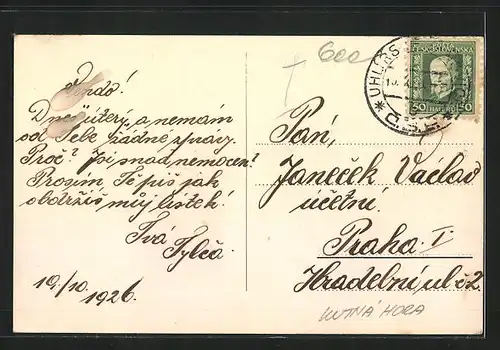 600
Jendo!
Dnes úterý a nemám
od Tebe žádné zprávy.
Proč? Jsi snad nemocen?
Prosím, Tě piš jak
obdržíš můj lístek!
Tvá
19/10. 1926.
Pán,
Janeček Václav
účetní.
Praha I.
Hradební ul č 2
KUTNÁ HORA
ČESKOSLOVENSKA
50 HALÉŘŮ 50